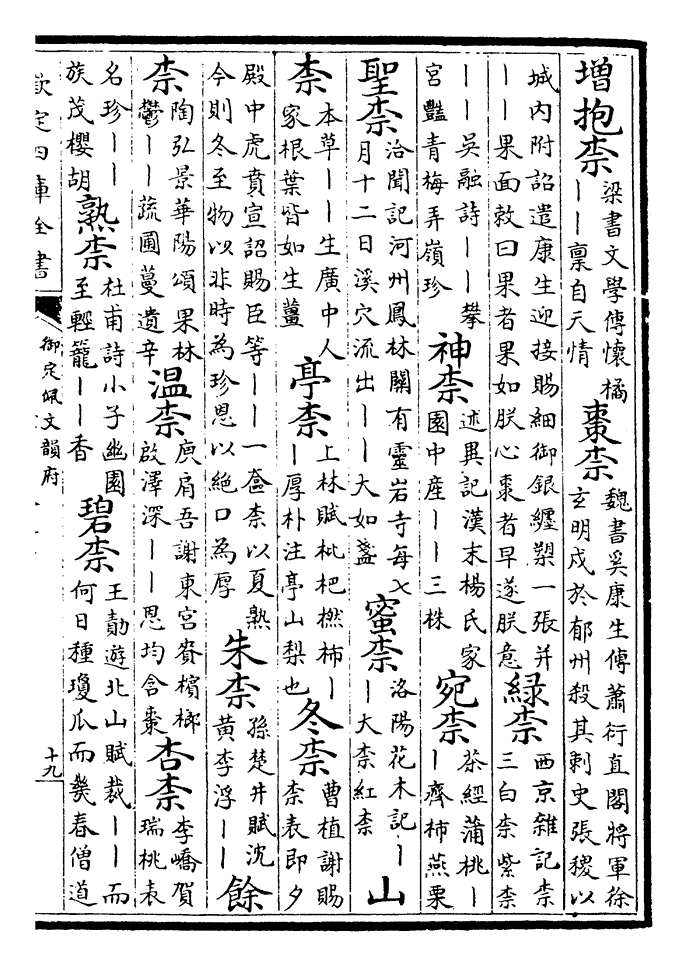 增抱柰梁書文學傳懷橘——稟自天情棗柰魏書奚康生傳蕭衍直閣將軍徐玄明戍於郁州殺其刺史張稷以
城內附詔遣康生迎接賜細御銀纏槊一張并——果面敕曰果者果如朕心棗者早遂朕意綠柰西京雜記柰三白柰紫柰
——吳融詩——攀宮豔青梅弄嶺珍神柰述異記漢末楊氏家園中産——三株宛柰茶經蒲桃——齊柿燕栗
聖柰洽聞記河州鳳林關有靈岩寺每七月十二日溪穴流出——大如盞蜜柰洛陽花木記——大柰紅柰山
柰本草——生廣中人家根葉皆如生薑亭柰上林賦枇杷橪柿——厚朴注亭山梨也冬柰曹植謝賜柰表即夕
殿中虎賁宣詔賜臣等——一奩柰以夏熟今則冬至物以非時為珍恩以絕口為厚朱柰孫楚井賦沈黃李浮——餘
柰陶弘景華陽頌果林鬱——蔬圃蔓遺辛温柰庾肩吾謝東宮賚檳榔啟澤深——恩均含棗杏柰李嶠賀瑞桃表
名珍——族茂櫻胡熟柰杜甫詩小子幽園至輕籠——香碧柰王勣遊北山賦裁——而何日種瓊瓜而幾春僧道
欽定四庫全書
御定佩文韻府
十九